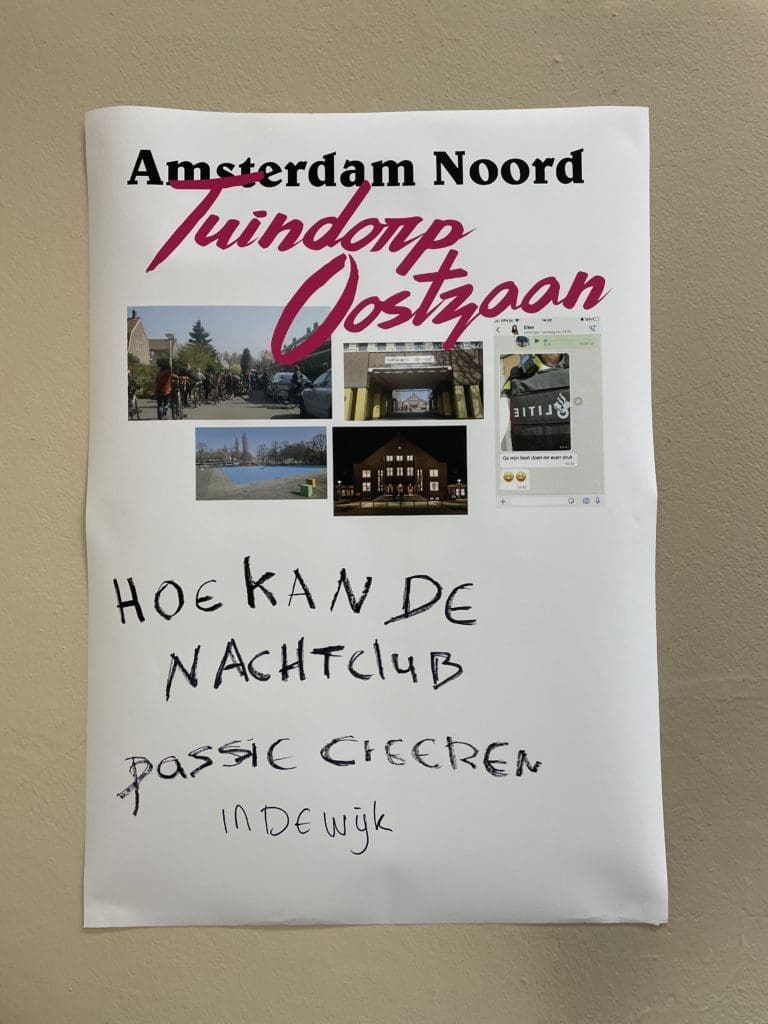 Amsterdam Noord
Tuindorp
Oostzaan
Ellen
POLITIE
Ga mijn best doen mr even druk
HOE KAN DE
NACHTCLUB
PASSIE CREEREN
IN DE WIJK